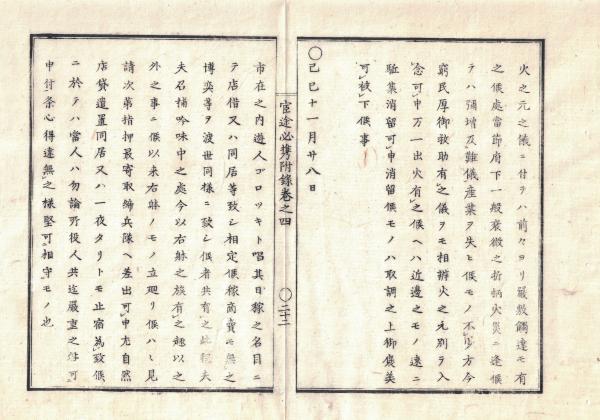 火之元之儀ニ付テハ前々ヨリ嚴敷觸達モ有
之候處當節府下一般衰微之折柄火災ニ逢候
テハ彌增及難儀產業ヲ失ヒ候モノ不少方今
窮民厚御救助有之儀ヲモ相辨火之元別ヲ入
念可申万一出火有之候ヘハ近邊之モノ速ニ
駈集消留可申消留候モノハ取調之上御褒美
可被下候事
〇己巳十一月廿八日
官途必携附錄卷之四
〇二十二
市在之内遊人ゴロツキト唱其日稼之名目ニ
テ店借又ハ同居等致シ相定候稼商賣モ無之
博奕等ヲ渡世同樣ニ致シ候者共有之此程夫
夫召捕吟味中之處今以右躰之族有之趣以之
外之事ニ候以來右躰ノモノ立廻リ候ハヽ見
請次第指押最寄取締兵隊ヘ差出可申尤自然
店貸遣置同居又ハ一夜タリトモ止宿爲致候
ニ於テハ當人ハ勿論所役人共迄嚴重之咎可
申付条心得違無之樣堅可相守モノ也